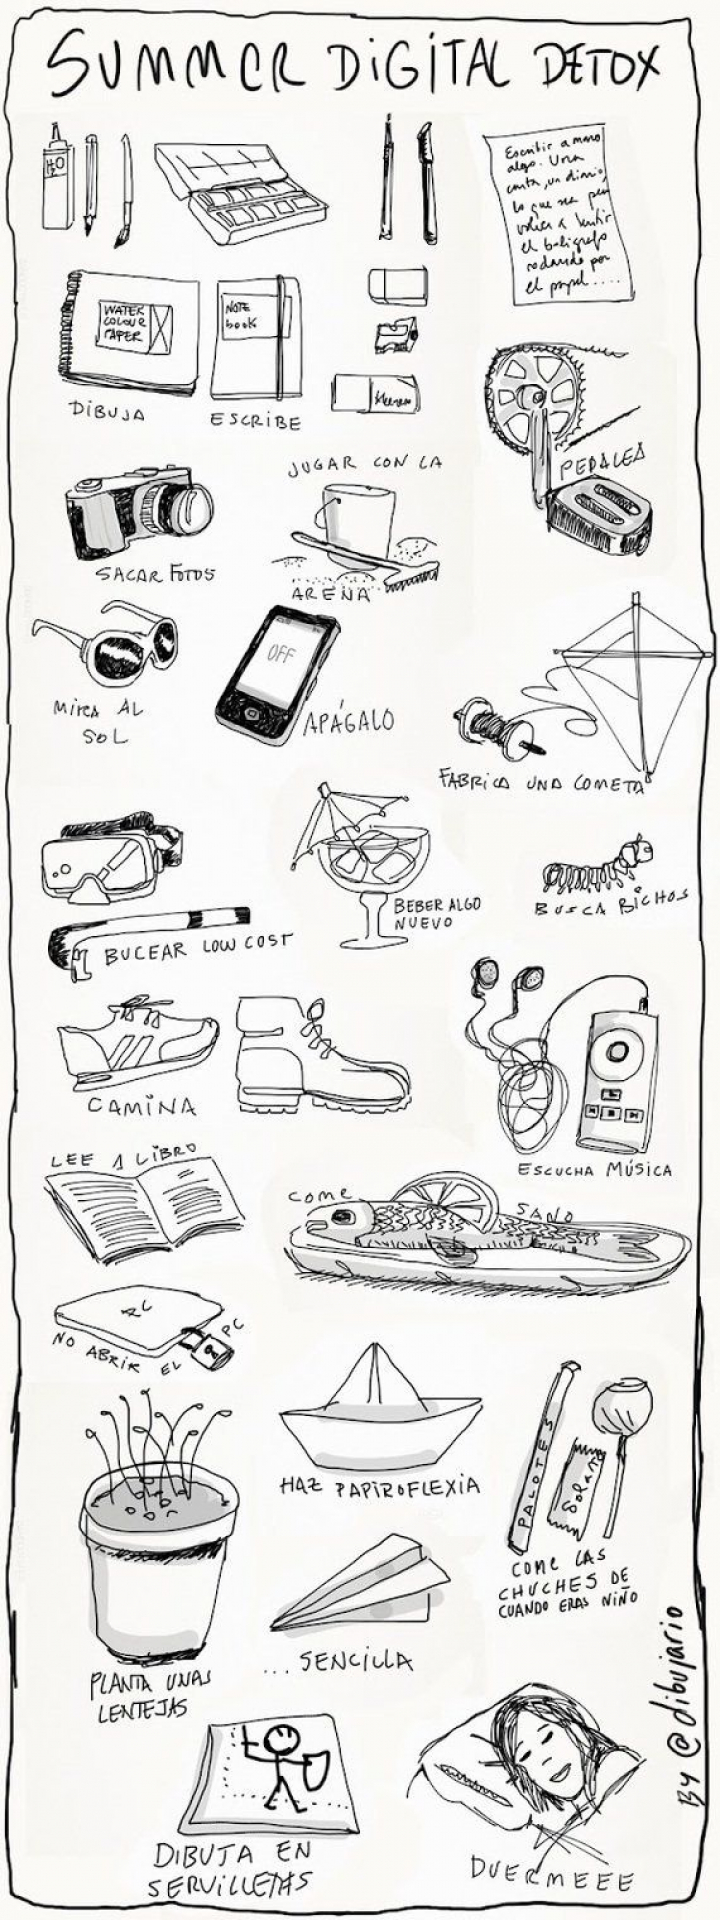 SUMMER DIGITAL DETOX
H2O
Escribir a mano
algo. Una
carta, un diario,
lo que sea pero
volver a sentir
el bolígrafo
rodando por
el papel....
WATER
COLOUR
PAPER
NOTE
book
DIBUJA
ESCRIBE
PEDALEA
JUGAR CON LA
ARENA
SACAR FOTOS
OFF
MIRA AL
SOL
APÁGALO
FABRICA UNA COMETA
BEBER ALGO
NUEVO
BUSCA BICHOS
BUCEAR LOW COST
CAMINA
ESCUCHA MÚSICA
LEE 1 LIBRO
COME SANO
NO ABRIR EL PC
HAZ PAPIROFLEXIA
PALOTES
COME LAS
CHUCHES DE
CUANDO ERAS NIÑO
... SENCILLA
PLANTA UNAS
LENTEJAS
By @dibujario
DIBUJA EN
SERVILLETAS
DUERMEEE